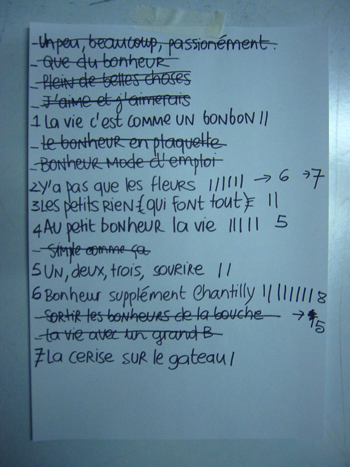 - Un peu, beaucoup, passionément.
- Que du bonheur
- Plein de belles choses
- J'aime et j'aimerais
1 La vie c'est COMME UN BONBON II
- le bonheur en plaquette
- Bonheur Mode d'emploi
2 Y'a pas que les fleurs IIIIII → 6 → 7
3 Les petits RIEN { qui FONT tout } II
4 AU petit bonheur la vie IIIII 5
- Simple comme ça
5 UN, deux, trois, sourire II
6 Bonheur supplément Chantilly IIIIIIII 8
- Sortir les bonheurs de la bouche → 5
- la vie avec un grand B
7 La cerise sur le gateau I